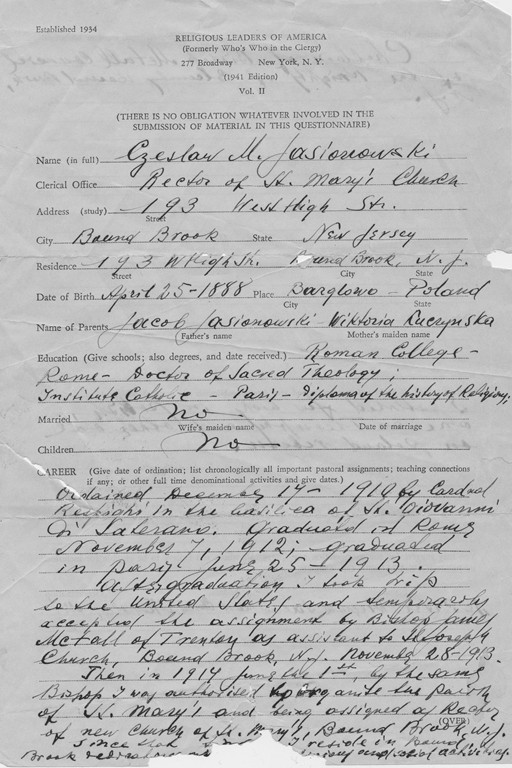 Established 1934
RELIGIOUS LEADERS OF AMERICA
(Formerly Who's Who in the Clergy)
277 Broadway New York, N. Y.
(1941 Edition)
Vol. II
(THERE IS NO OBLIGATION WHATEVER INVOLVED IN THE
SUBMISSION OF MATERIAL IN THIS QUESTIONNAIRE)
Name (in full) Czeslaw M. Jasionowski
Clerical Office Rector of St. Mary's Church
Address (study) 193 West High Str.
Street
City Bound Brook State New Jersey
Residence 193 W High Str. Bound Brook, N. J.
Street City State
Date of Birth April 25-1888 Place Barglowo - Poland
City State
Name of Parents Jacob Jasionowski - Wiktoria Ruczynska
Father's name Mother's maiden name
Education (Give schools; also degrees, and date received.) Roman College -
Rome - Doctor of Sacred Theology;
Institute Catholic - Paris - Diploma of the history of Religions;
Married No
Wife's maiden name Date of marriage
Children No
CAREER (Give date of ordination; list chronologically all important pastoral assignments; teaching connections
if any; or other full time denominational activities and give dates.)
Ordained December 17 - 1910 by Cardinal
Respighi in the basilica of St. Giovanni
in Laterano. Graduated in Rome
November 7, 1912; graduated
in Paris June 25 - 1913.
After graduation I took trip
to the United States and temporarily
accepted the assignment by Bishop James
McFall of Trenton as assistant to St. Joseph
Church, Bound Brook, N. J. November 28-1913.
Then in 1914 June the 1st, by the same
Bishop I was authorised to organise the parish
of St. Mary's and being assigned as Rector
(OVER)
of new church of St. Mary's, Bound Brook, N. J.
Since that I reside in Bound
Brook and social activities.